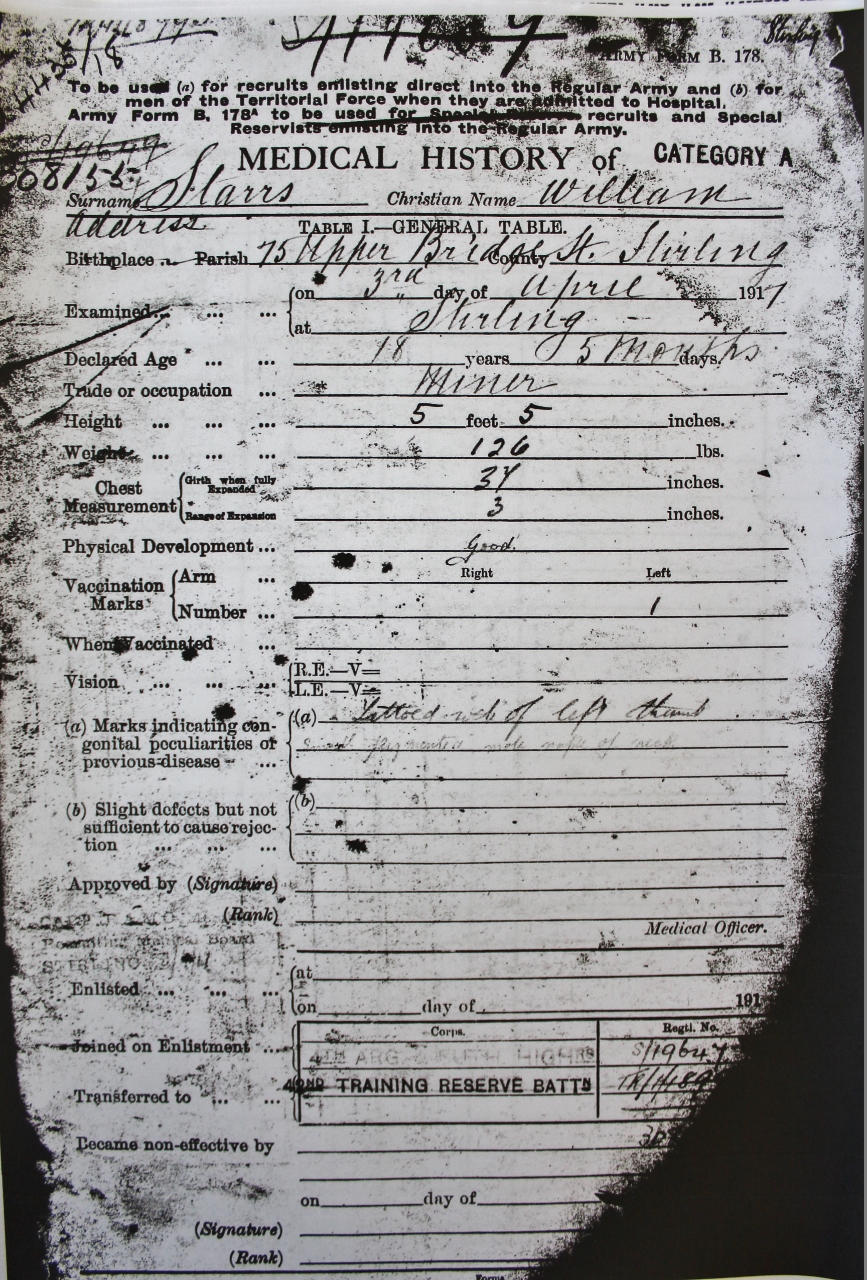 Stirling
ARMY FORM B. 178.
To be used (a) for recruits enlisting direct into the Regular Army and (b) for
men of the Territorial Force when they are admitted to Hospital.
Army Form B. 178A to be used for Special recruits and Special
Reservists enlisting into the Regular Army.
S/19647
308155
MEDICAL HISTORY of CATEGORY A
Surname Starrs Christian Name William
Address
TABLE I.—GENERAL TABLE.
Birthplace ... Parish 75 Upper Bridge St. County Stirling
Examined ... ... ... on 3rd day of April 1917
at Stirling
Declared Age ... ... 18 years 5 Months days.
Trade or occupation ... Miner
Height ... ... ... 5 feet 5 inches.
Weight ... ... ... 126 lbs.
Chest Measurement Girth when fully Expanded 37 inches.
Range of Expansion 3 inches.
Physical Development ... good.
Right Left
Vaccination Marks Arm ...
Number ... 1
When Vaccinated ...
Vision ... ... ... R.E.—V=
L.E.—V=
(a) Marks indicating con- (a) Tattoed web of left thumb
genital peculiarities or small pigmented mole nape of neck
previous disease ...
(b) Slight defects but not (b)
sufficient to cause rejec-
tion ... ... ...
Approved by (Signature)
(Rank)
Medical Officer.
Medical Board
STIRLING
Enlisted ... ... ... at
on day of 191
Corps. Regtl. No.
Joined on Enlistment ... ARG. & SUTH. HIGHRS S/19647
42ND TRAINING RESERVE BATTN
Transferred to ... ...
Became non-effective by
on day of
(Signature)
(Rank)
Forms